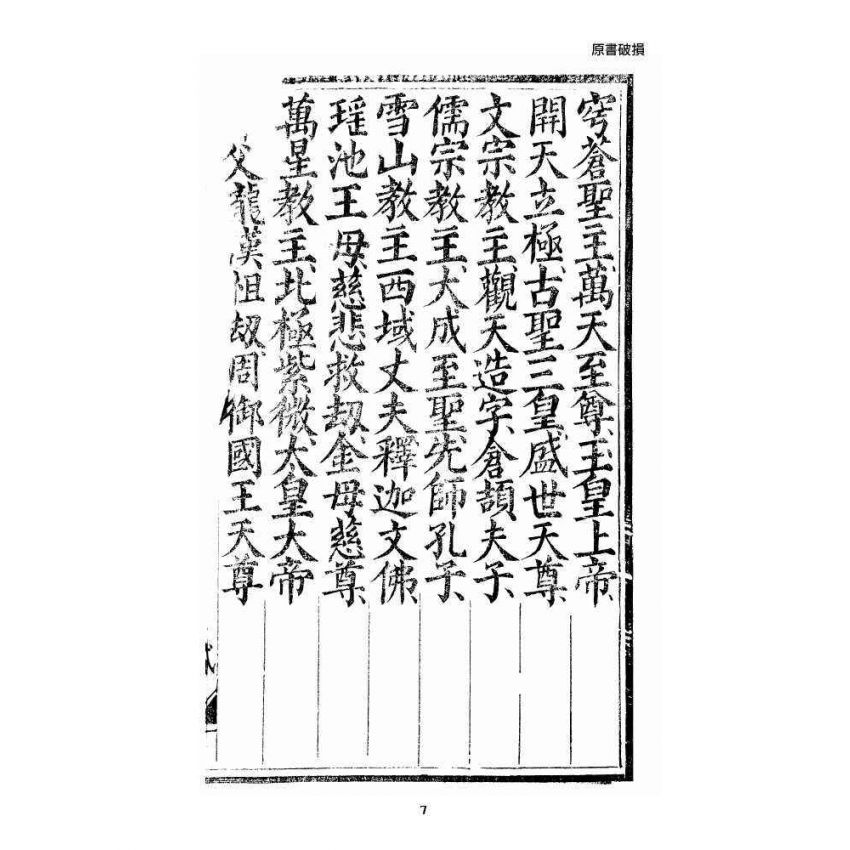 原書破損
穹蒼聖主、萬天至尊、玉皇上帝、
開天立極、古聖三皇、盛世天尊、
文宗教主、觀天造字、倉頡夫子、
儒宗教主、大成至聖、先師孔子、
雪山教主、西域丈夫、釋迦文佛、
瑶池王母、慈悲救劫、金母慈尊、
萬星教主、北極紫微、大皇大帝
父龍漢祖劫、周御國王天尊
7